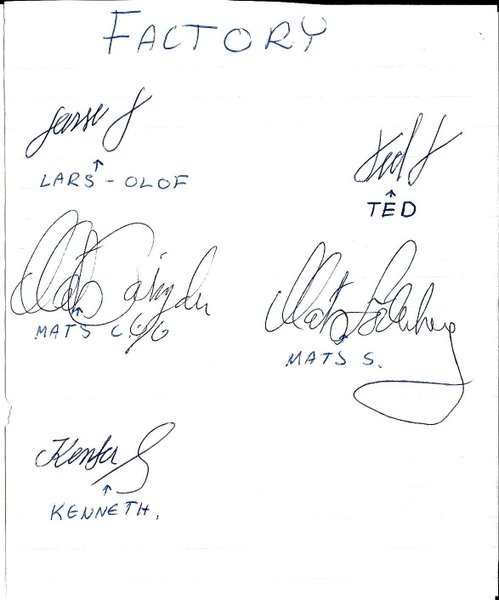 FACTORY
Lasse
LARS-OLOF
Ted
TED
Mats
MATS C.
Mats
MATS S.
Kenta
KENNETH.